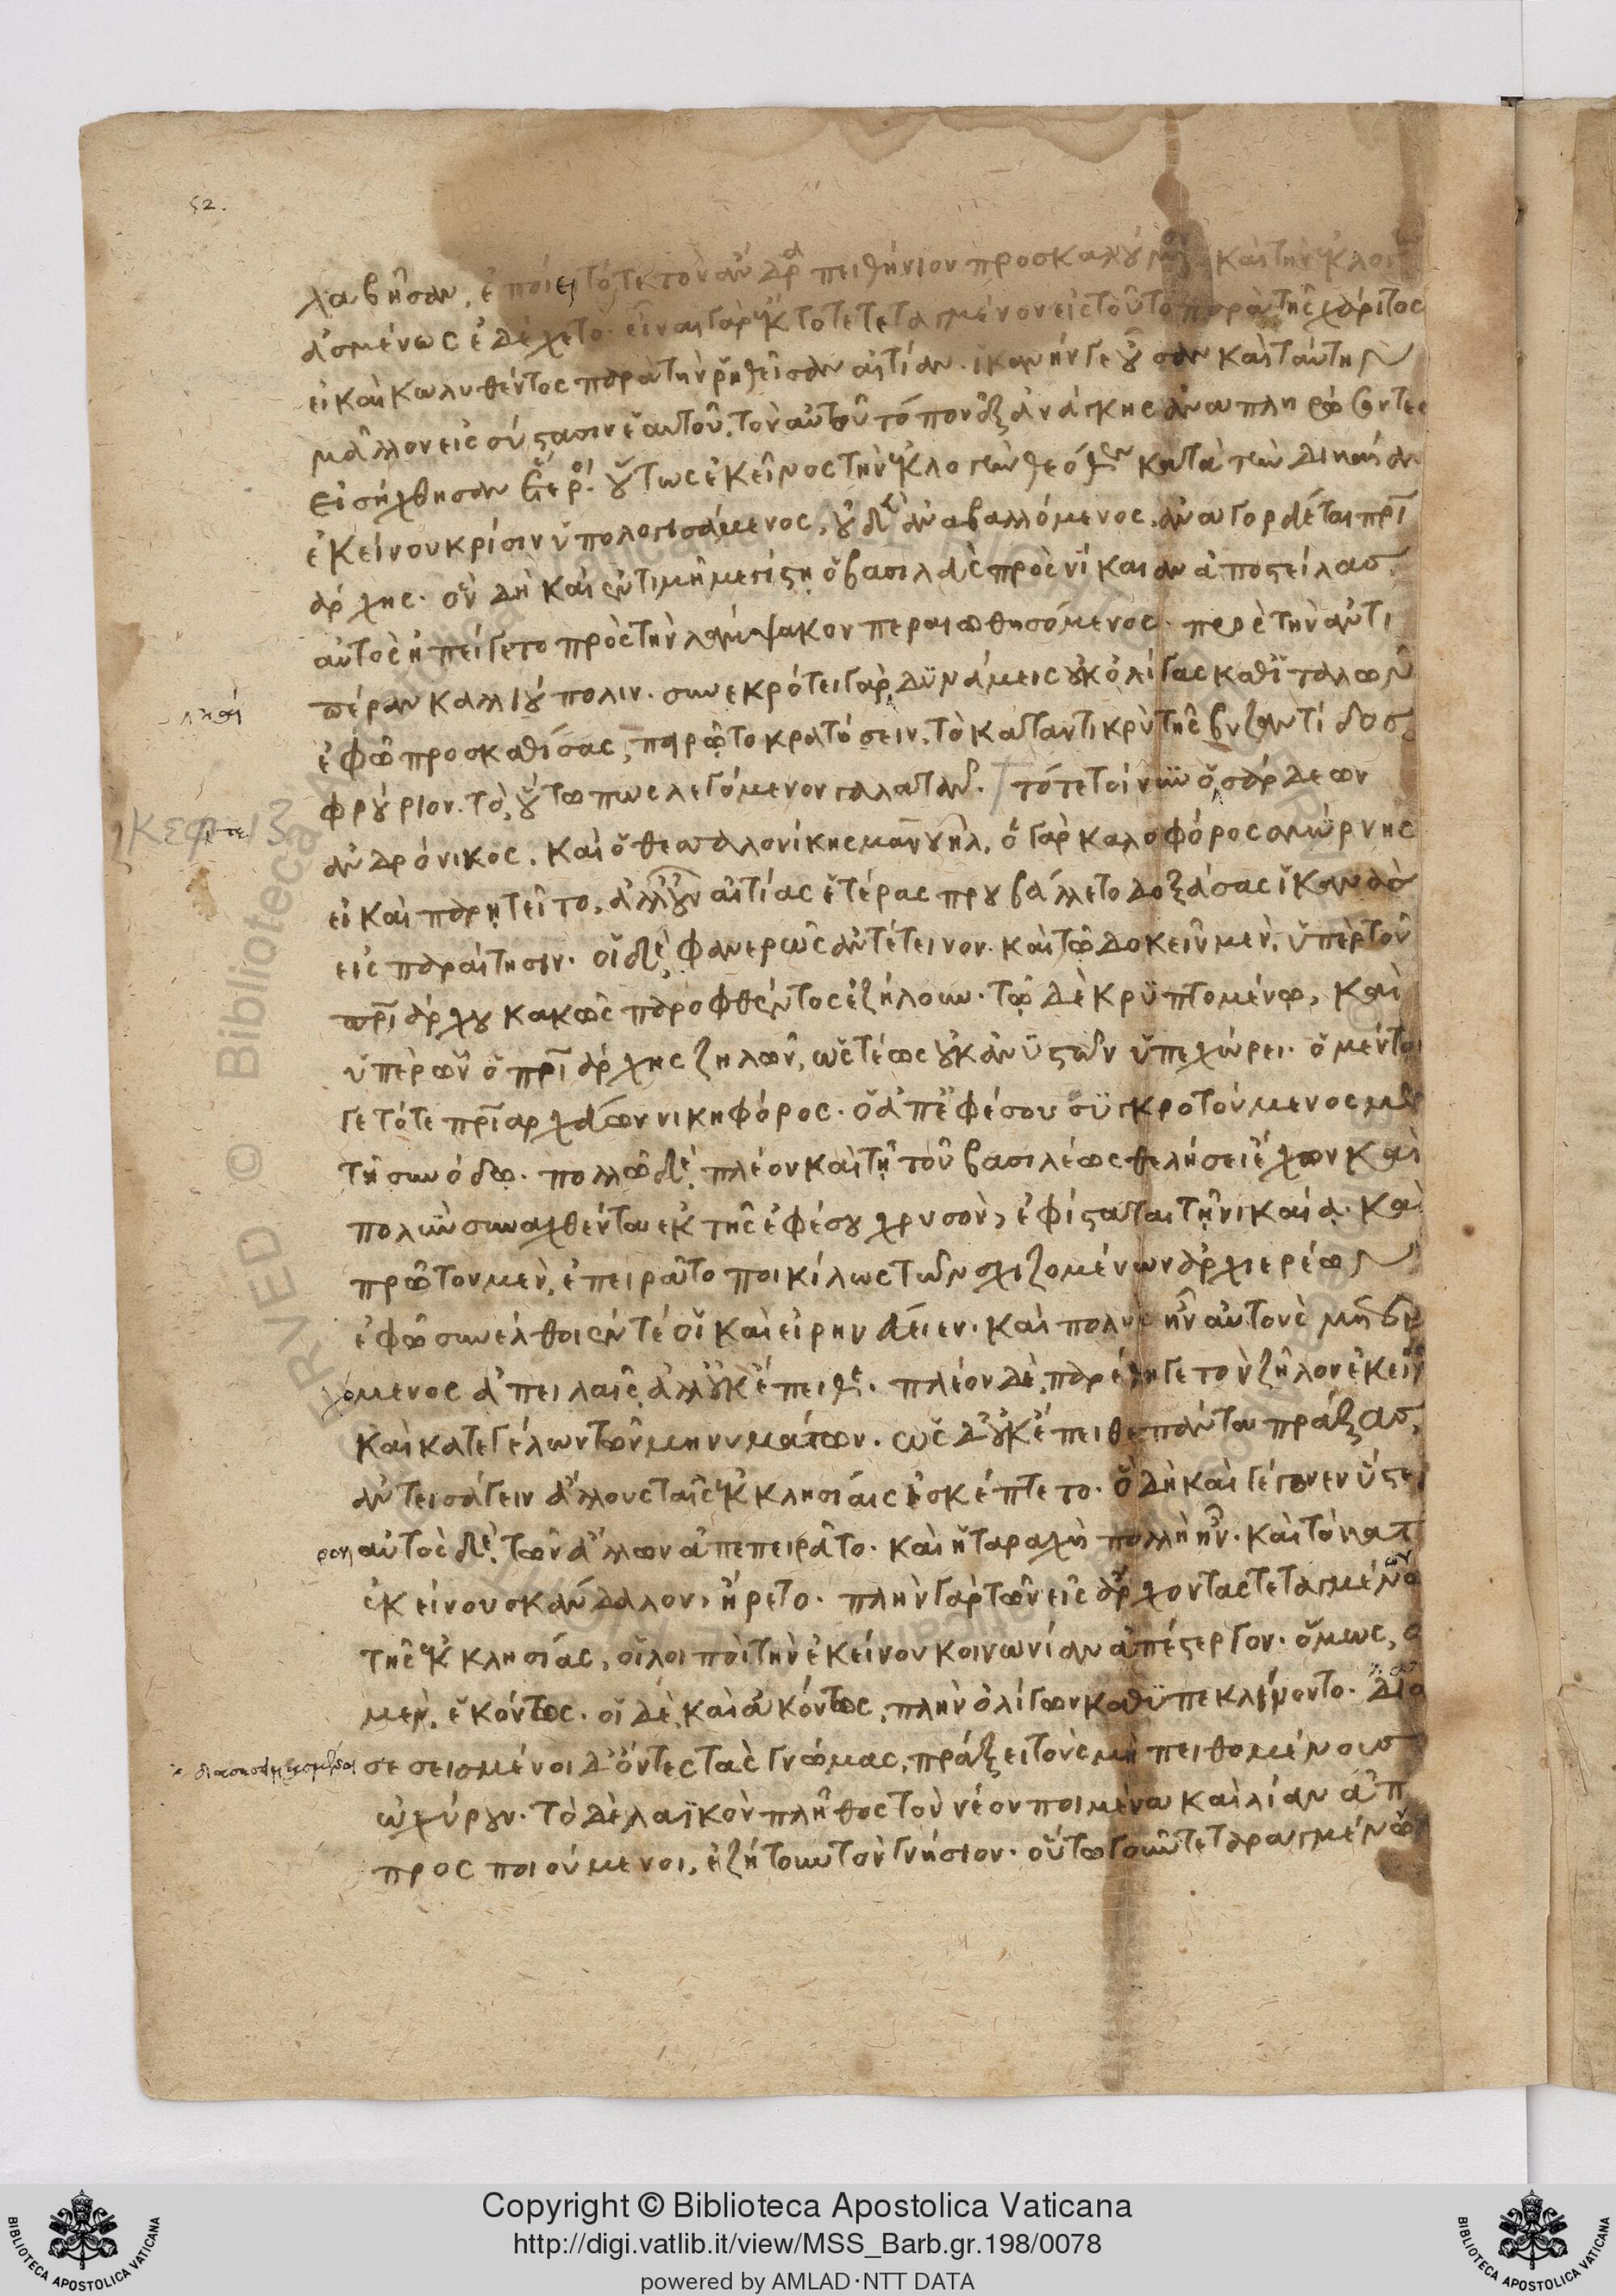 52.
λαβῆσαν, ἐποίει τότε τὸν ἄνδρα πειθήνιον προσκαλούμενον καὶ τὴν ἐκλογὴν
ἀσμένως ἐδέχετο. εἶναι γὰρ ἔκτοτε τεταγμένον εἰς τοῦτο παρὰ τῆς χάριτος
εἰ καὶ κωλυθέντος παρὰ τὴν ῥηθεῖσαν αἰτίαν. ἱκανήν γε οὖσαν καὶ ταύτην
μᾶλλον εἰς σύστασιν ἑαυτοῦ. τὸν αὐτοῦ τόπον ἐξ ἀνάγκης ἀναπληροῦντες
εἰσήχθησαν ἕτεροι. οὕτως ἐκεῖνος τὴν ἔκ θεόθεν κατὰ τὴν
ἐκείνου κρίσιν ὑπολογισάμενος, οὐδὲν ἀναβαλλόμενος. ἀναγορεύεται πρι
άρχης. ὃν δὴ καὶ ἐν τιμῇ μεγίστῃ ὁ βασιλεὺς πρὸς νίκαιαν ἀποστείλας.
αὐτὸς ἠπείγετο πρὸς τὴν λάμψακον περαιωθησόμενος. πρὸς τὴν ἀντι
πέραν καλλιούπολιν. συνεκρότει γὰρ δυνάμεις οὐκ ὀλίγας καθ' ἰταλῶν
ἐφ' ᾧ προσκαθίσας, πειρῷτο κρατήσειν. τὸ καταντικρὺ τῆς βυζαντίδος
φρούριον. τὸ, οὕτω πως λεγόμενον γαλατᾶν. τότε τοίνυν ὁ σάρδεων
ἀνδρόνικος. καὶ ὁ θεσσαλονίκης μανουὴλ. ὁ γὰρ καλοφόρος σμύρνης
εἰ καὶ παρῃτεῖτο, ἀλλ' οὖν αἰτίας ἑτέρας προυβάλλετο δοξάσας ἱκανὰς
εἰς παραίτησιν. οἱ δὲ, φανερῶς ἀντέτεινον. καὶ τῷ δοκεῖν μὲν, ὑπὲρ τοῦ
πριάρχου κακῶς παροφθέντος ἐζήλουν. τῷ δὲ κρυπτομένῳ, καὶ
ὑπὲρ ὧν ὁ πριάρχης ζηλῶν, ὡς τέως οὐκ ἀνυστῶν ὑπεχώρει. ὁ μέντοι
γε τότε πριαρχεύων νικηφόρος. ὁ ἀπ' ἐφέσου συγκροτούμενος μὲν
τῇ συνόδῳ. πολλῷ δὲ, πλέον καὶ τῇ τοῦ βασιλέως θελήσει ἔχων καὶ
πολὺν συναχθέντα ἐκ τῆς ἐφέσου χρυσὸν, ἐφίσταται τῇ νικαίᾳ. καὶ
πρῶτον μὲν, ἐπειρᾶτο ποικίλως τῶν σχιζομένων ἀρχιερέων
ἐφ' ᾧ συνέλθοιέν τέ οἱ καὶ εἰρηνεύειεν. καὶ πολὺς ἦν αὐτοὺς μηδε
χόμενος ἀπειλαῖς, ἀλλ' οὐκ ἔπειθε. πλέον δὲ, παρέθηγε τὸν ζῆλον ἐκείνοις
καὶ κατεγέλων τῶν μηνυμάτων. ὡς δ' οὐκ ἔπειθε πάντα πράξας,
ἀντεισάγειν ἄλλους ταῖς ἐκκλησίαις ἐσκέπτετο. ὃ δὴ καὶ γέγονεν ὕστε
ρον αὐτὸς δὲ, τῶν ἄλλων ἀπεπειρᾶτο. καὶ ἡ ταραχὴ πολλὴ ἦν. καὶ τὸ κατ'
ἐκείνου σκάνδαλον, ᾔρετο. πλὴν γὰρ τῶν εἰς ἄρχοντας τεταγμένων
τῆς ἐκκλησίας, οἱ λοιποὶ τὴν ἐκείνου κοινωνίαν ἀπέστεργον. ὅμως, οἱ
μὲν, ἑκόντες. οἱ δὲ, καὶ ἄκοντες, πλὴν ὀλίγων καθυπεκλίνοντο. δια
σεσεισμένοι δ' ὄντες τὰς γνώμας, πράξει τοὺς μὴ πειθομένους
ὠχύρουν. τὸ δὲ λαϊκὸν πλῆθος τὸν νέον ποιμένα καὶ λίαν ἀπ
προσποιούμενοι, ἐζήτουν τὸν γνήσιον. οὕτω γοῦν τεταραγμένων
Copyright © Biblioteca Apostolica Vaticana
http://digi.vatlib.it/view/MSS_Barb.gr.198/0078
powered by AMLAD·NTT DATA
BIBLIOTECA APOSTOLICA VATICANA
BIBLIOTECA APOSTOLICA VATICANA